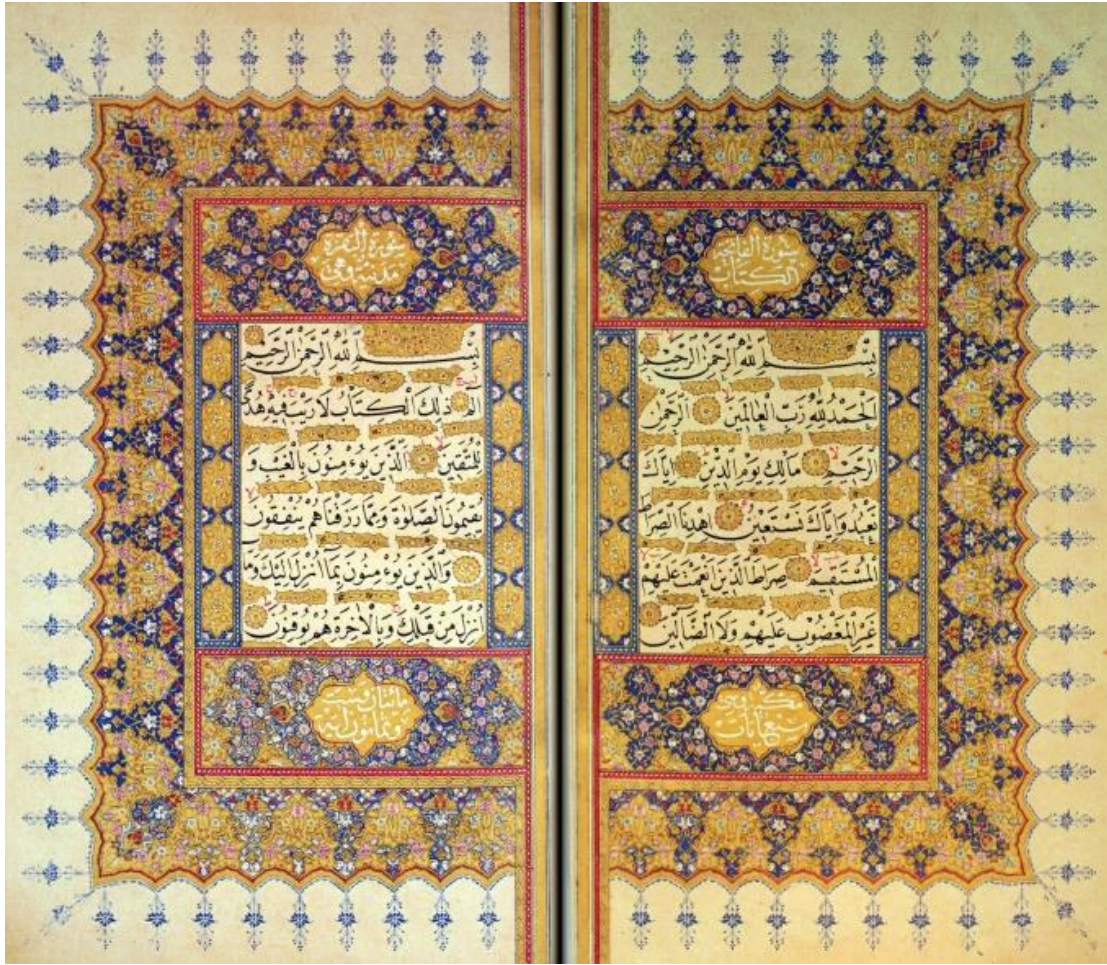 سورة الفاتحة
الكتاب
بِسْمِ اللهِ الرَّحْمٰنِ الرَّحِيْمِ
اَلْحَمْدُ لِلّٰهِ رَبِّ الْعَالَمِيْنَ الرَّحْمٰنِ
الرَّحِيْمِ مَالِكِ يَوْمِ الدِّيْنِ اِيَّاكَ
نَعْبُدُ وَاِيَّاكَ نَسْتَعِيْنُ اِهْدِنَا الصِّرَاطَ
الْمُسْتَقِيْمَ صِرَاطَ الَّذِيْنَ اَنْعَمْتَ عَلَيْهِمْ
غَيْرِ الْمَغْضُوْبِ عَلَيْهِمْ وَلَا الضَّالِّيْنَ
مكية وهى
سبع ايات
سورة البقرة
مدنية وهى
بِسْمِ اللهِ الرَّحْمٰنِ الرَّحِيْمِ
الٓمٓ ذٰلِكَ الْكِتَابُ لَا رَيْبَ فِيْهِ هُدًى
لِلْمُتَّقِيْنَ اَلَّذِيْنَ يُوءْمِنُوْنَ بِالْغَيْبِ وَ
يُقِيْمُوْنَ الصَّلٰوةَ وَمِمَّا رَزَقْنَاهُمْ يُنْفِقُوْنَ
وَالَّذِيْنَ يُوءْمِنُوْنَ بِمَا اُنْزِلَ اِلَيْكَ وَمَا
اُنْزِلَ مِنْ قَبْلِكَ وَبِالْاٰخِرَةِ هُمْ يُوْقِنُوْنَ
مائتان وست
وثمانون اية